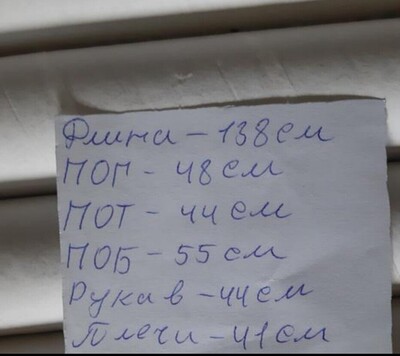 Длина - 138 см
ПОГ - 48 см
ПОТ - 44 см
ПОБ - 55 см
Рукав - 44 см
Плечи - 41 см